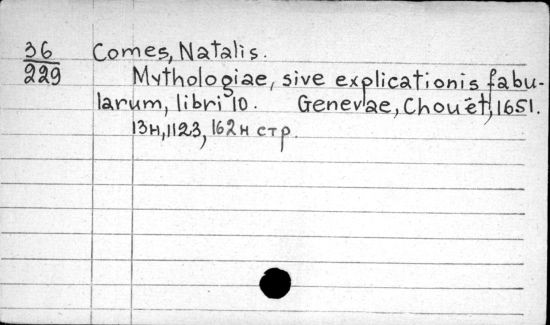 36 Comes, Natalis.
229 Mythologiae, sive explicationis fabu-
larum, libri 10. Genevae, Chouët, 1651.
13н, 1123, 162н стр.